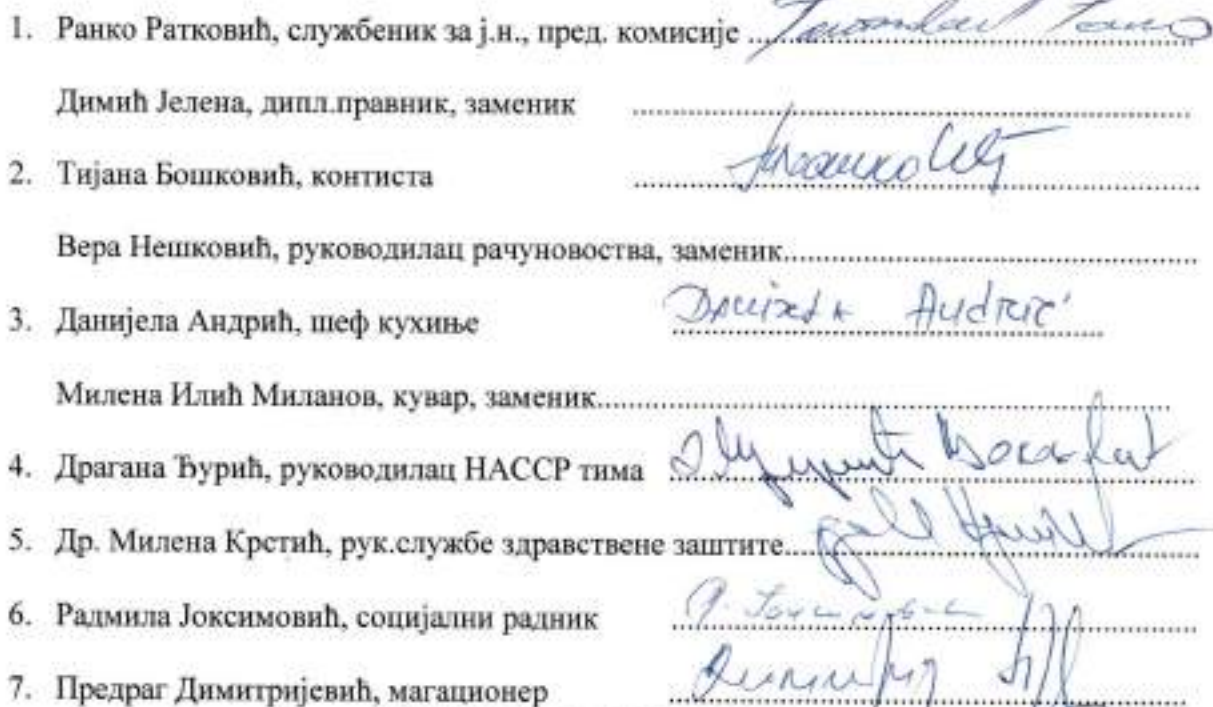 1. Ранко Ратковић, службеник за ј.н., пред. комисије
Димић Јелена, дипл.правник, заменик
2. Тијана Бошковић, контиста
Вера Нешковић, руководилац рачуновоства, заменик
3. Данијела Андрић, шеф кухиње
Милена Илић Миланов, кувар, заменик
4. Драгана Ђурић, руководилац НАССР тима
5. Др. Милена Крстић, рук.службе здравствене заштите
6. Радмила Јоксимовић, социјални радник
7. Предраг Димитријевић, магационер